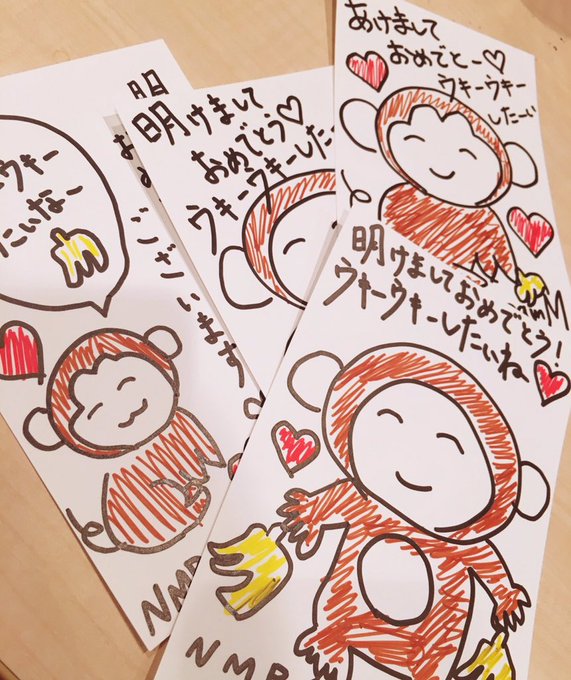 明
お
ございます。
ウキー
たいなー
NMB
明けまして
おめでとう♡
ウキーウキーしたー
あけまして
おめでとー♡
ウキーウキー
したーい
明けましておめでとう!
ウキーウキーしたいね
NMB